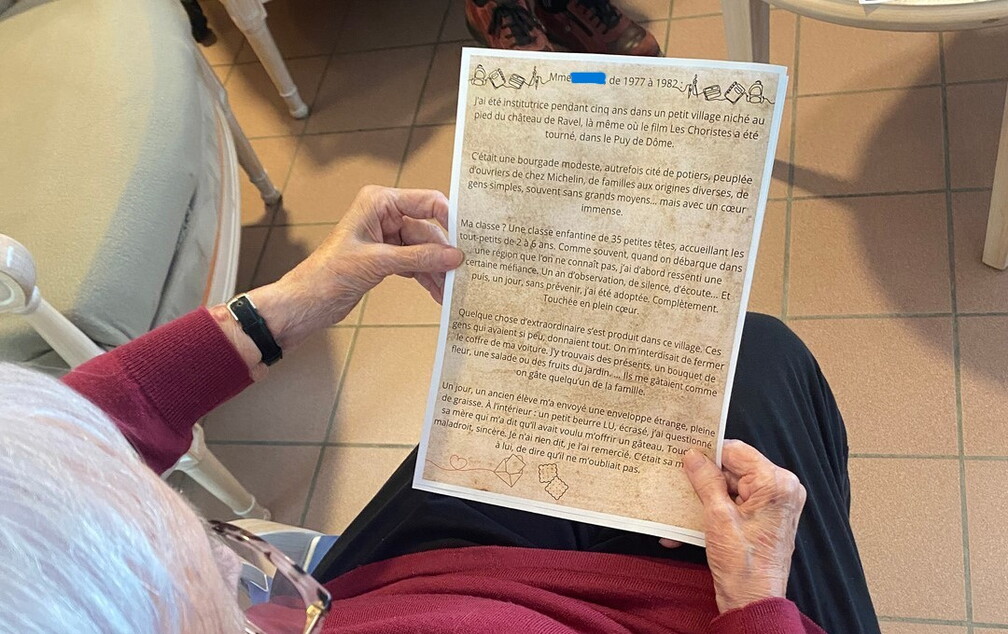 Mme de 1977 à 1982 :
J'ai été institutrice pendant cinq ans dans un petit village niché au
pied du château de Ravel, là même où le film Les Choristes a été
tourné, dans le Puy de Dôme.
C'était une bourgade modeste, autrefois cité de potiers, peuplée
d'ouvriers de chez Michelin, de familles aux origines diverses, de
gens simples, souvent sans grands moyens... mais avec un cœur
immense.
Ma classe ? Une classe enfantine de 35 petites têtes, accueillant les
tout-petits de 2 à 6 ans. Comme souvent, quand on débarque dans
une région que l'on ne connaît pas, j'ai d'abord ressenti une
certaine méfiance. Un an d'observation, de silence, d'écoute... Et
puis, un jour, sans prévenir, j'ai été adoptée. Complètement.
Touchée en plein cœur.
Quelque chose d'extraordinaire s'est produit dans ce village. Ces
gens qui avaient si peu, donnaient tout. On m'interdisait de fermer
le coffre de ma voiture. J'y trouvais des présents, un bouquet de
fleur, une salade ou des fruits du jardin. ... Ils me gâtaient comme
on gâte quelqu'un de la famille.
Un jour, un ancien élève m'a envoyé une enveloppe étrange, pleine
de graisse. À l'intérieur : un petit beurre LU, écrasé, j'ai questionné
sa mère qui m'a dit qu'il avait voulu m'offrir un gâteau,
maladroit, sincère. Je n'ai rien dit, je l'ai remercié. C'était sa
à lui, de dire qu'il ne m'oubliait pas.